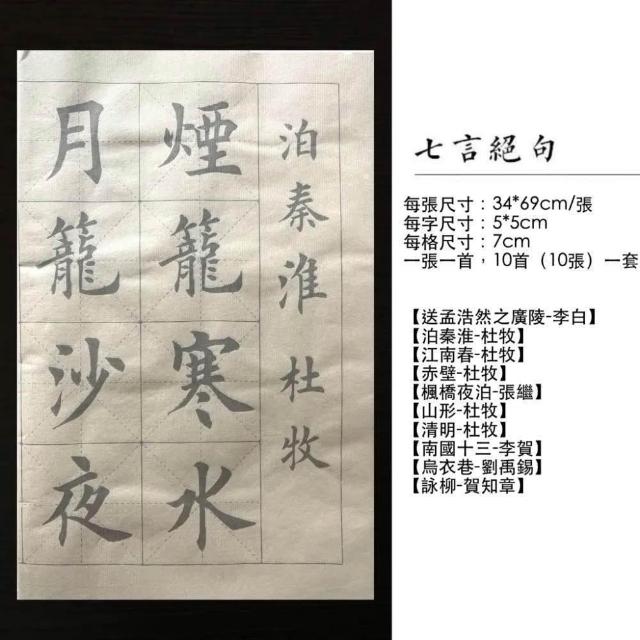 泊秦淮 杜牧
煙籠寒水
月籠沙夜
七言絕句
每張尺寸：34*69cm/張
每字尺寸：5*5cm
每格尺寸：7cm
一張一首，10首（10張）一套
【送孟浩然之廣陵-李白】
【泊秦淮-杜牧】
【江南春-杜牧】
【赤壁-杜牧】
【楓橋夜泊-張繼】
【山形-杜牧】
【清明-杜牧】
【南國十三-李賀】
【烏衣巷-劉禹錫】
【詠柳-賀知章】